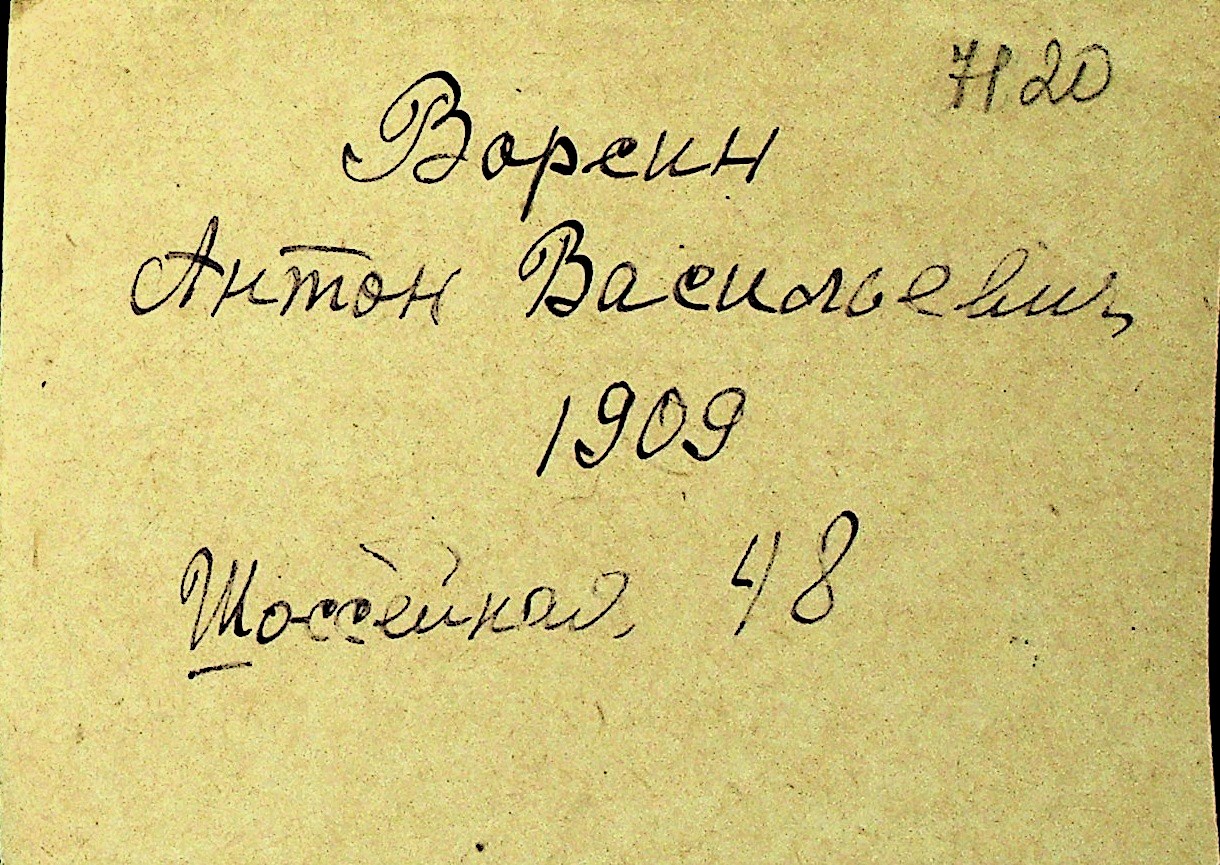 7120
Ворсин
Антон Васильевич
1909
Шоссейная 48